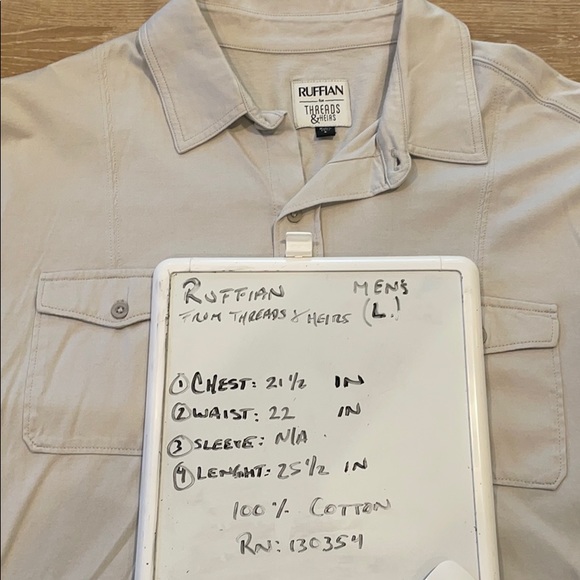 RUFFIAN
for
THREADS
& HEIRS
RUFFIAN MEN'S
FROM THREADS & HEIRS (L!)
① CHEST: 21 1/2 IN
② WAIST: 22 IN
③ SLEEVE: N/A
④ LENGHT: 25 1/2 IN
100% COTTON
RN: 130354